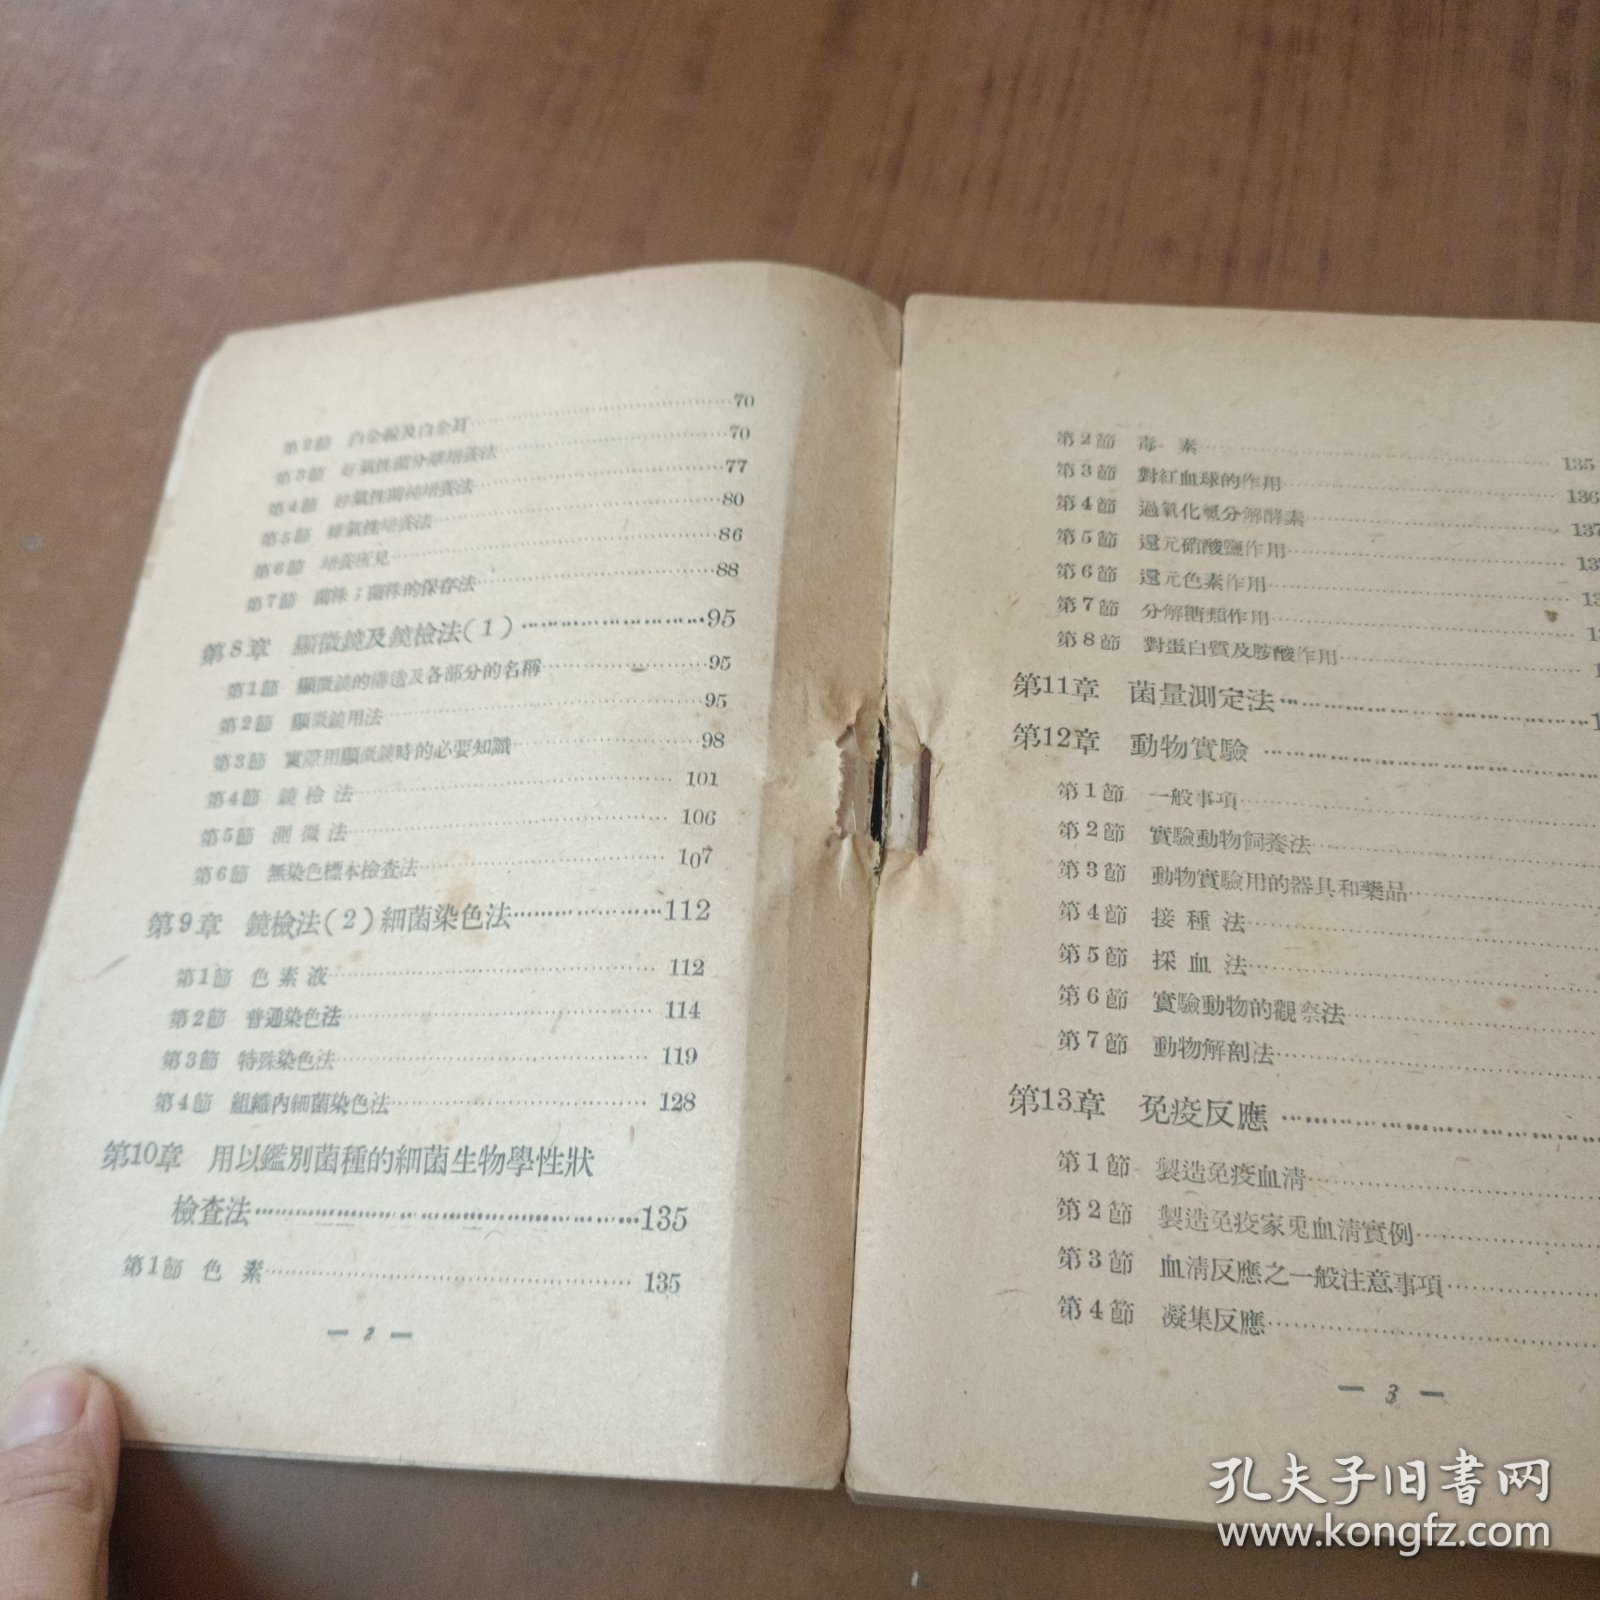 第2節 白金線及白金耳 70
第3節 好氣性菌分離培養法 70
第4節 好氣性菌純培養法 77
第5節 嫌氣性培養法 80
第6節 培養所見 86
第7節 菌株；菌株的保存法 88
第8章 顯微鏡及鏡檢法(1) 95
第1節 顯微鏡的構造及各部分的名稱 95
第2節 顯微鏡用法 95
第3節 實際用顯微鏡時的必要知識 98
第4節 鏡檢法 101
第5節 測微法 106
第6節 無染色標本檢查法 107
第9章 鏡檢法(2)細菌染色法 112
第1節 色素液 112
第2節 普通染色法 114
第3節 特殊染色法 119
第4節 組織內細菌染色法 128
第10章 用以鑑別菌種的細菌生物學性狀
檢查法 135
第1節 色素 135
— 2 —
第2節 毒素 135
第3節 對紅血球的作用 136
第4節 過氧化氫分解酵素 137
第5節 還元硝酸鹽作用
第6節 還元色素作用
第7節 分解糖類作用
第8節 對蛋白質及胺酸作用
第11章 菌量測定法
第12章 動物實驗
第1節 一般事項
第2節 實驗動物飼養法
第3節 動物實驗用的器具和藥品
第4節 接種法
第5節 採血法
第6節 實驗動物的觀察法
第7節 動物解剖法
第13章 免疫反應
第1節 製造免疫血清
第2節 製造免疫家兎血清實例
第3節 血清反應之一般注意事項
第4節 凝集反應
— 3 —
孔夫子旧書网
www.kongfz.com